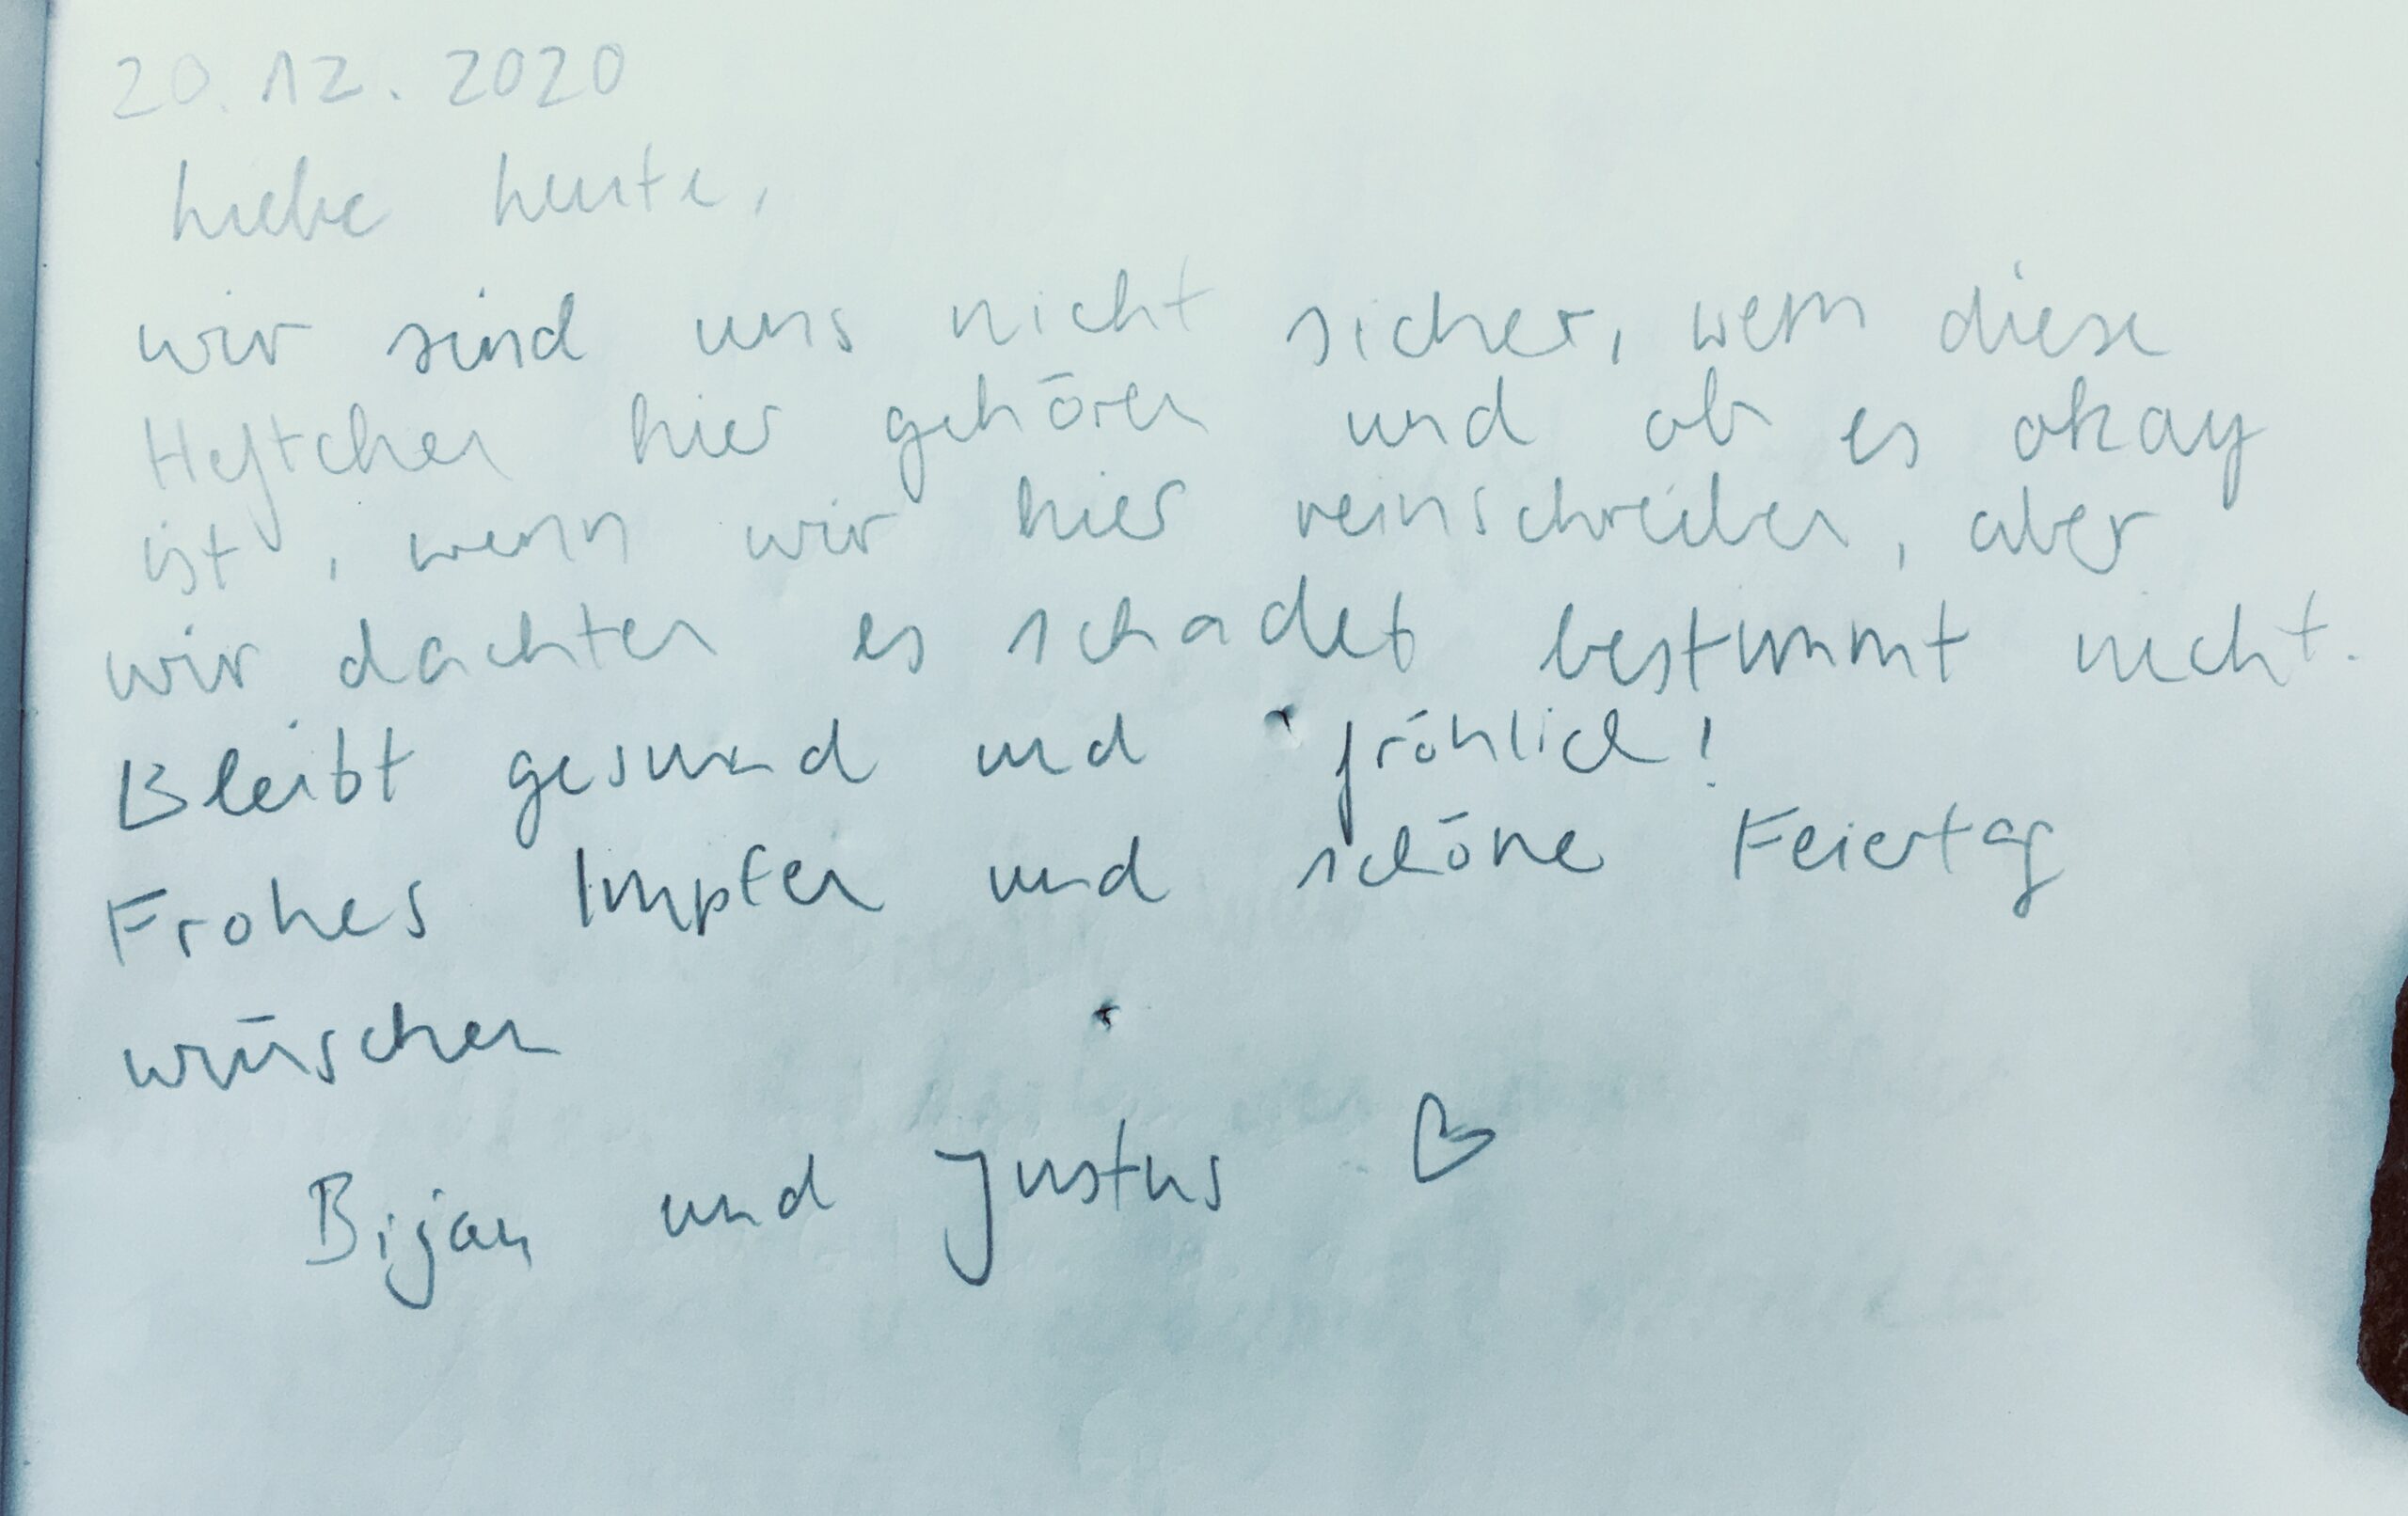 20.12.2020
Liebe Leute,
wir sind uns nicht sicher, wem diese
Heftchen hier gehören und ob es okay
ist, wenn wir hier reinschreiben, aber
wir dachten es schadet bestimmt nicht.
Bleibt gesund und fröhlich!
Frohes Impfen und schöne Feiertag
wünschen
Bijan und Justus ♡